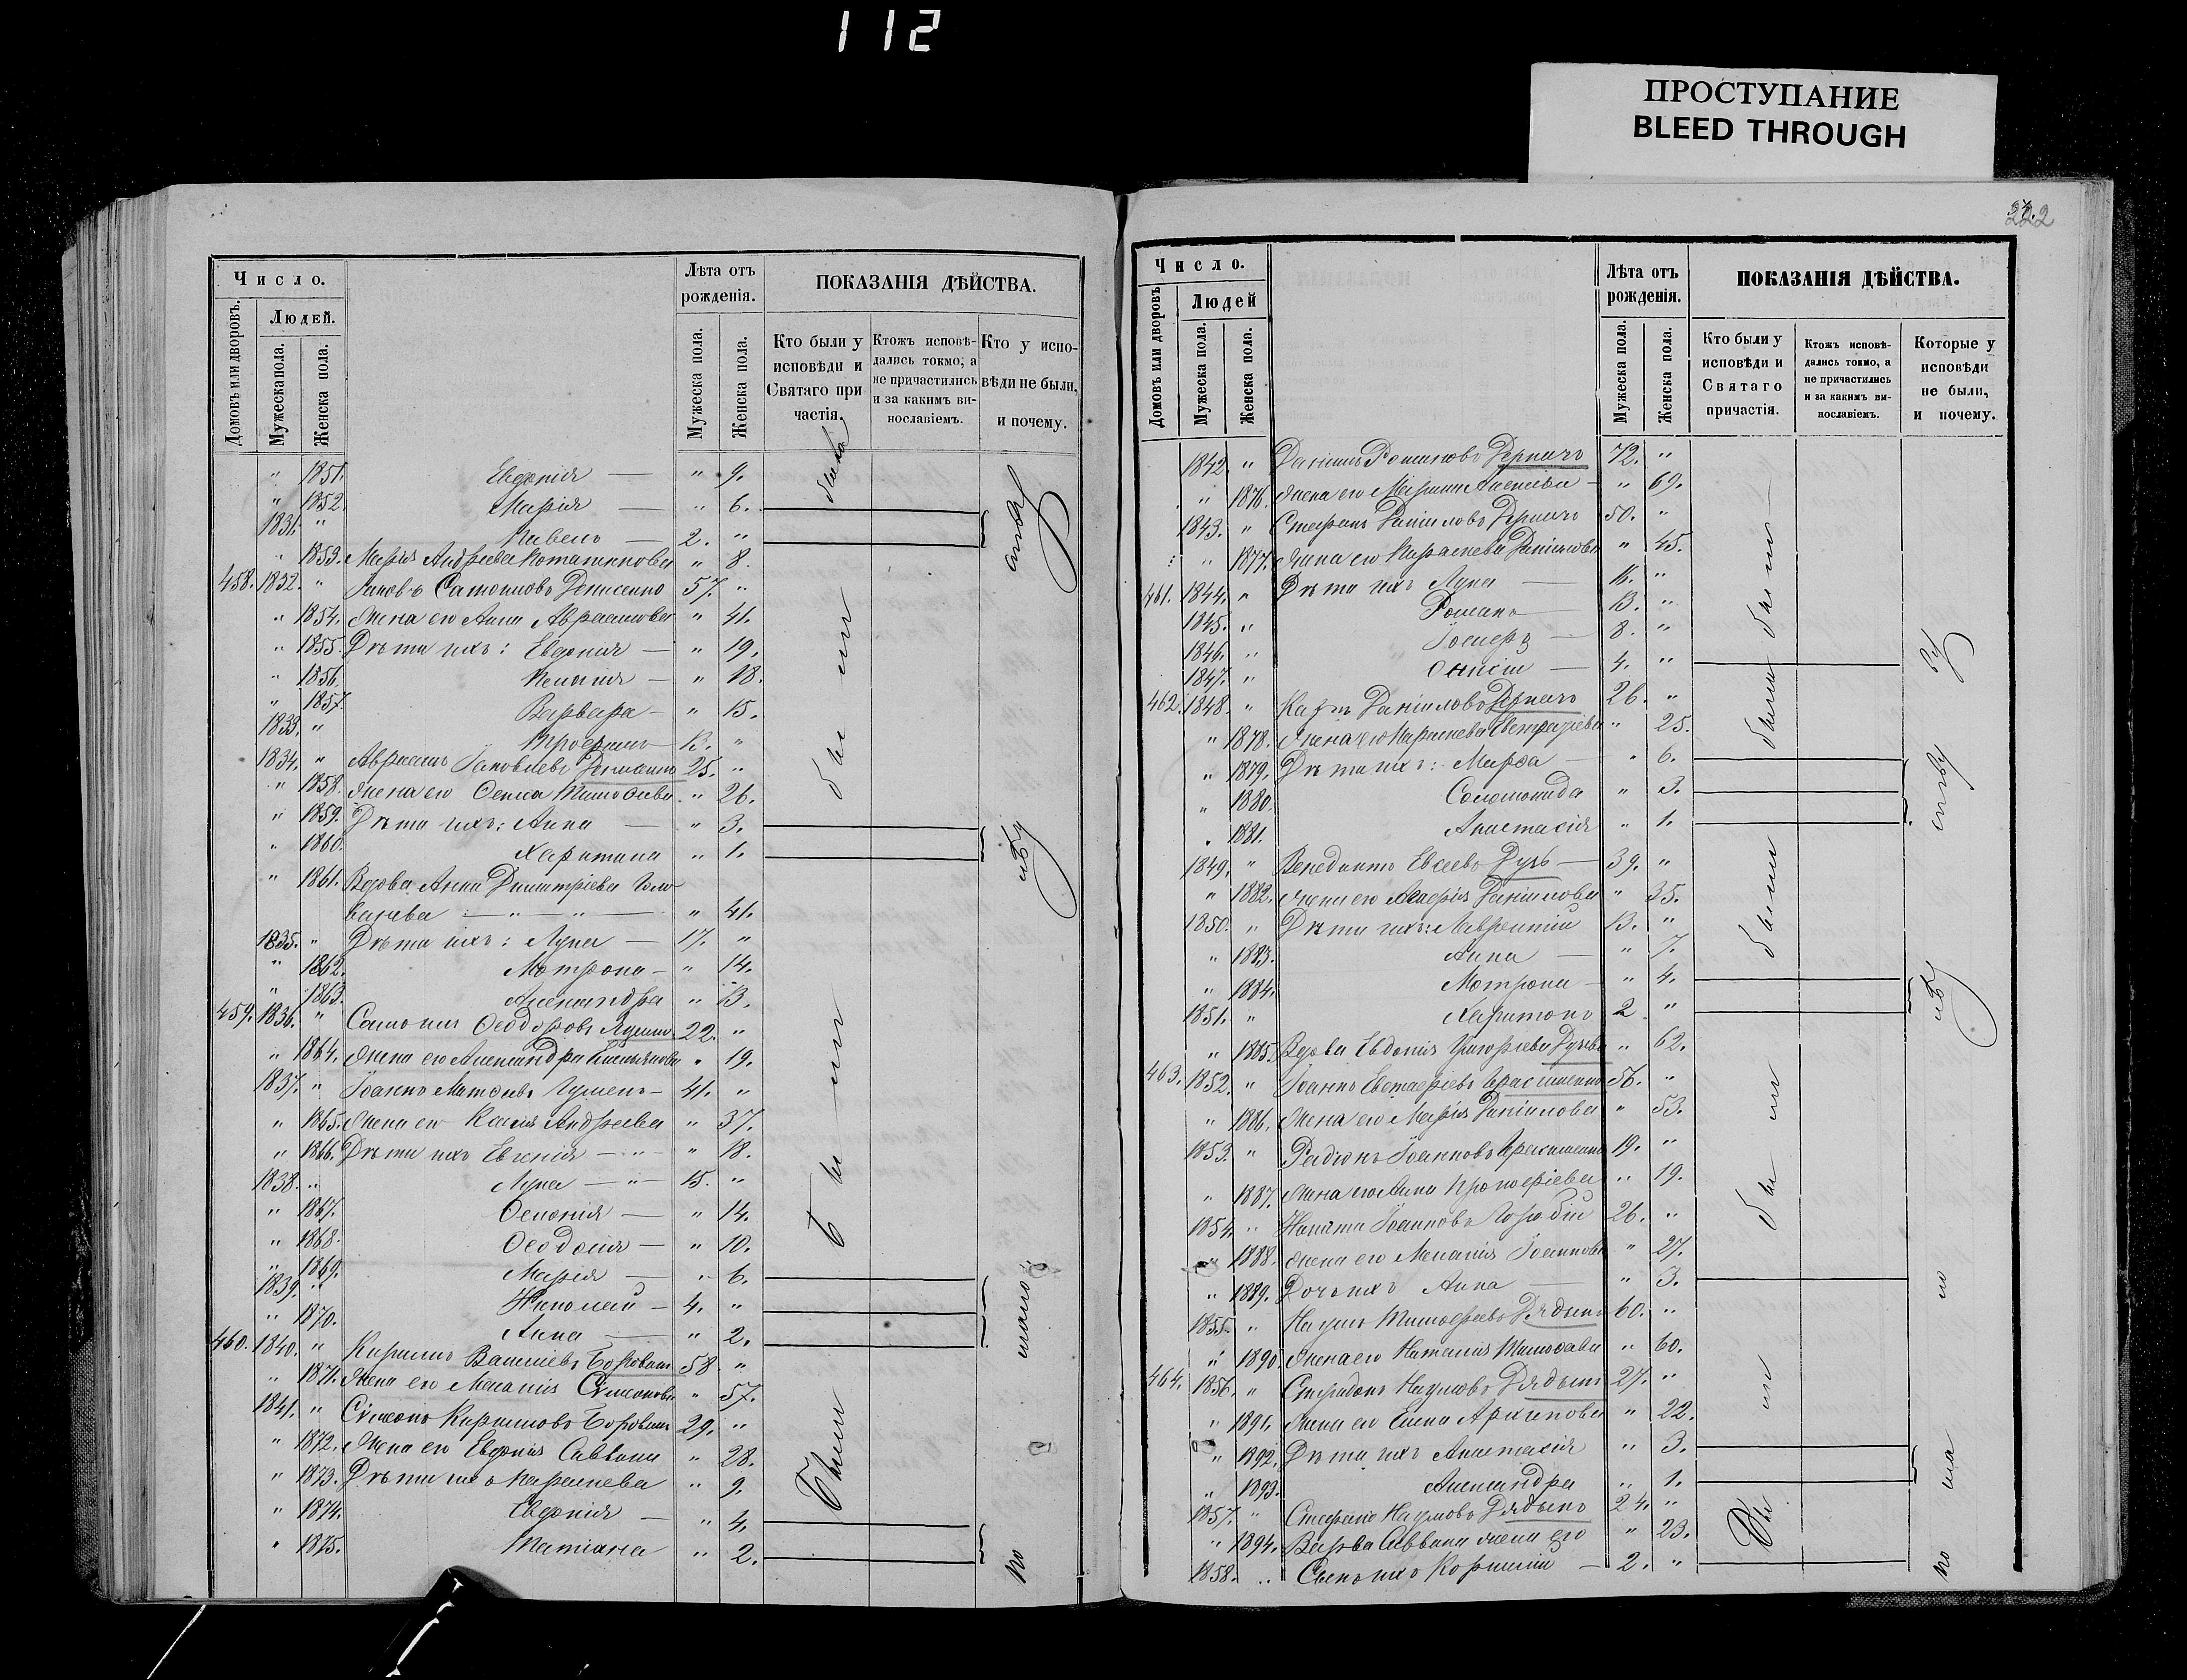 112
ПРОСТУПАНИЕ
BLEED THROUGH
Число.
Лѣта отъ рожденія.
ПОКАЗАНІЯ ДѢЙСТВА.
Домовъ или дворовъ.
Людей.
Мужеска пола.
Женска пола.
Мужеска пола.
Женска пола.
Кто были у исповѣди и Святаго причастія.
Ктожъ исповѣдались токмо, а не причастились и за какимъ винословіемъ.
Кто у исповѣди не были, и почему.
" 1851. Евфимія — " 9.
" 1852. Марія — " 6.
1831. " Павелъ — 2. "
" 1853. Марія Андреева " 8.
458. 1832. " Іаковъ Самоиловъ Денисенко 57. "
" 1854. Жена его Анна Авраамова " 41.
" 1855. Дѣти ихъ: Евфимія — " 19.
" 1856. Ксенія — " 18.
" 1857. Варвара — " 15.
1833. " Трофимъ 13. "
1834. " Авраамъ Іаковлевъ Денисенко 25. "
" 1858. Жена его Тимофеева " 26.
" 1859. Дѣти ихъ: Анна — " 3.
" 1860. Харитина " 1.
" 1861. Вдова Анна Димитріева Голо-
ванева — " — " — " 41.
1835. " Дѣти ихъ: Лука — 17. "
" 1862. Мотрона — " 14.
" 1863. Александра " 13.
459. 1836. " Самоилъ Ѳеодоровъ 22. "
" 1864. Жена его Александра Емельянова " 19.
1837. " Іоаннъ 41. "
" 1865. Жена его Андреева " 37.
" 1866. Дѣти ихъ Евгенія — " — " 18.
1838. " Лука — " — 15. "
" 1867. " 14.
" 1868. Ѳеодосія — " 10.
" 1869. Марія — " 6.
1839. " Николай — 4. "
" 1870. Анна — " 2.
460. 1840. " Кириллъ Василіевъ Боровикъ 58. "
" 1871. Жена его Меланія Сѵмеонова " 57.
1841. " Сѵмеонъ Кирилловъ Боровикъ 29. "
" 1872. Жена его Евфимія Саввина " 28.
" 1873. Дѣти ихъ Параскева " 9.
" 1874. Евфимія — " 4.
" 1875. Татіана " 2.
были
Были
222
Число.
Лѣта отъ рожденія.
ПОКАЗАНІЯ ДѢЙСТВА.
Домовъ или дворовъ
Людей
Мужеска пола.
Женска пола.
Мужеска пола.
Женска пола.
Кто были у исповѣди и Святаго причастія.
Ктожъ исповѣдались токмо, а не причастились и за какимъ винословіемъ.
Которые у исповѣди не были, и почему.
1842. " Даніилъ Романовъ Деркачъ 72. "
" 1876. Жена его Алексіева — " 69.
1843. " Стефанъ Даніиловъ Деркачъ 50. "
" 1877. Жена его Параскева Даніилова " 45.
461. 1844. " Дѣти ихъ Лука — 16. "
1845. " Романъ 13. "
1846. " Іосифъ — 8. "
1847. " Онисім — 4. "
462. 1848. " Карпъ Даніиловъ Деркачъ 26. "
" 1878. Жена его Параскева Евстратіева " 25.
" 1879. Дѣти ихъ: Марѳа — " 6.
" 1880. Соломонида " 3.
" 1881. Анастасія " 1.
1849. " Венедиктъ Евсеевъ — 39. "
" 1882. Жена его Марія Даніилова " 35.
1850. " Дѣти ихъ: Лаврентій 13. "
" 1883. Анна — " 7.
" 1884. Мотрона — " 4.
1851. " Харитонъ 2 "
" 1885. Вдова Евдокія Григоріева " 62.
463. 1852. " Іоаннъ Евстафіевъ Герасименко 56. "
" 1886. Жена его Марія Даніилова " 53.
1853. " Радіонъ Іоанновъ Герасименко 19. "
" 1887. Жена его Анна Прокофіева " 19.
1854. " Никита Іоанновъ 26. "
" 1888. Жена его Меланія Іоаннова " 27.
" 1889. Дочь ихъ Анна — " 3.
1855. " Наумъ Тимофеевъ Дядынъ 60. "
" 1890. Жена его Наталія Тимофеева " 60.
464. 1856. " Спиридонъ Наумовъ Дядынъ 27. "
" 1891. Жена его Елена Архипова " 22.
" 1892. Дѣти ихъ Анастасія " 3.
" 1893. Александра " 1.
1857. " Стефанъ Наумовъ Дядынъ 24. "
" 1894. Варвара Саввина жена его " 23.
1858. " Сынъ ихъ Корнилій — 2. "
были
были
были